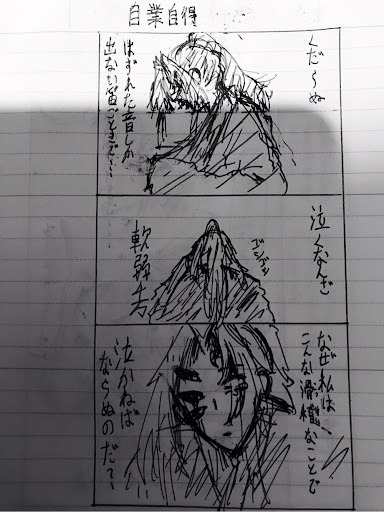 自業自得
くだらぬ
はずれた音しか
出ない笛ごときで…
泣くなんざ
ゴシゴシ
軟弱者
なぜ私は、
こんな滑稽なことで
泣かねば
ならぬのだ?